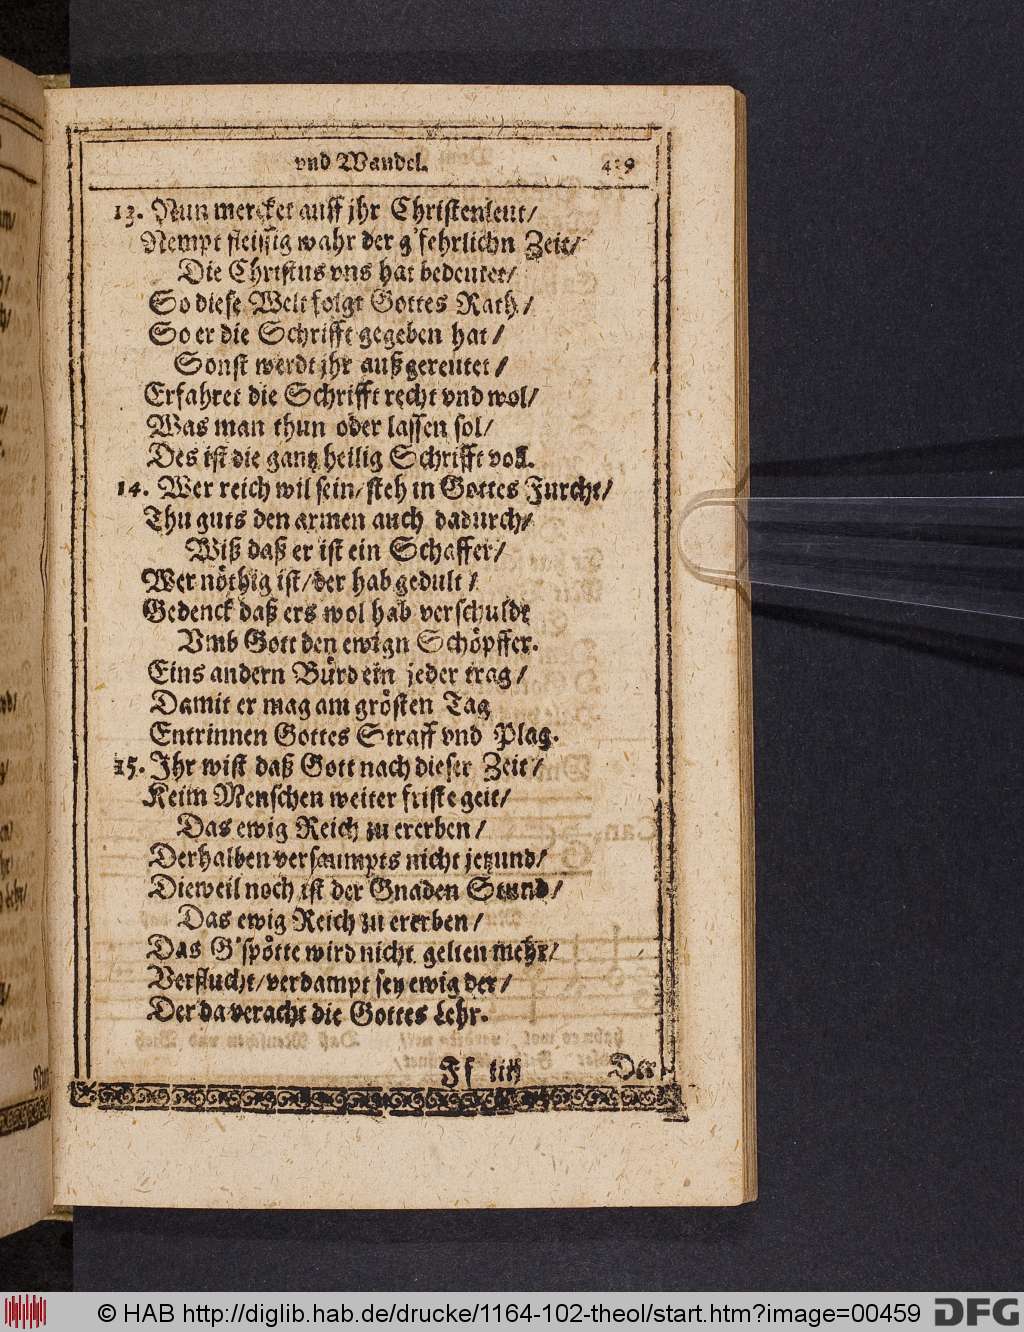 vnd Wandel. 459
13. Nun mercket auff jhr Christenleut/
Nempt fleissig wahr der g'fehrlichn Zeit/
Die Christus vns hat bedeutet/
So diese Welt folgt Gottes Rath/
So er die Schrifft gegeben hat/
Sonst werdt jhr außgereutet/
Erfahret die Schrifft recht vnd wol/
Was man thun oder lassen sol/
Des ist die gantz heilig Schrifft voll.
14. Wer reich wil sein/ steh in Gottes Furcht/
Thu guts den armen auch dadurch/
Wiß daß er ist ein Schaffer/
Wer nöthig ist/ der hab gedult/
Gedenck daß ers wol hab verschuldt
Vmb Gott den ewign Schöpffer.
Eins andern Bürd ein jeder trag/
Damit er mag am grösten Tag
Entrinnen Gottes Straff vnd Plag.
15. Ihr wist daß Gott nach dieser Zeit/
Keim Menschen weiter friste geit/
Das ewig Reich zu ererben/
Derhalben versaumpts nicht jetzund/
Dieweil noch ist der Gnaden Stund/
Das ewig Reich zu ererben/
Das G'spötte wird nicht gelten mehr/
Verflucht/ verdampt sey ewig der/
Der da veracht die Gottes Lehr.
Ff iiij Der
© HAB http://diglib.hab.de/drucke/1164-102-theol/start.htm?image=00459 DFG